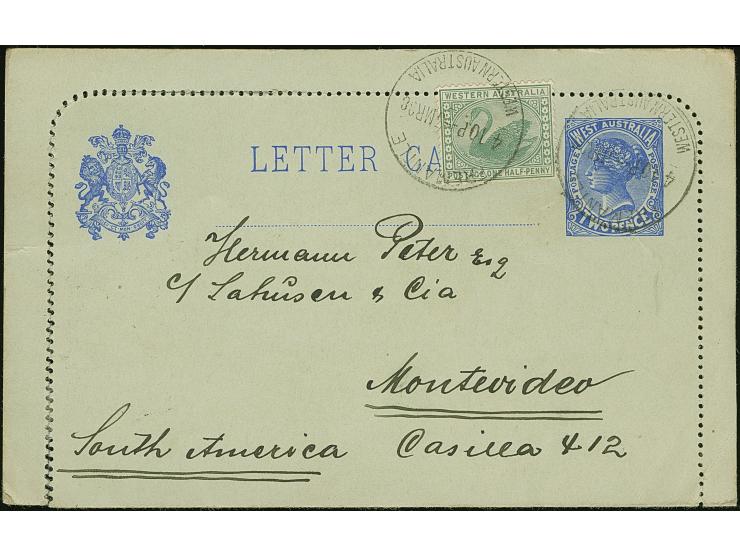 WESTERN AUSTRALIA
FREMANTLE
WESTERN AUSTRALIA
POSTAGE ONE HALF-PENNY
WESTERN AUSTRALIA
WEST AUSTRALIA
POSTAGE
POSTAGE
TWO PENCE
LETTER
Hermann Peter Esq
c/ Lahusen & Cia
Montevideo
South America Casilla 412